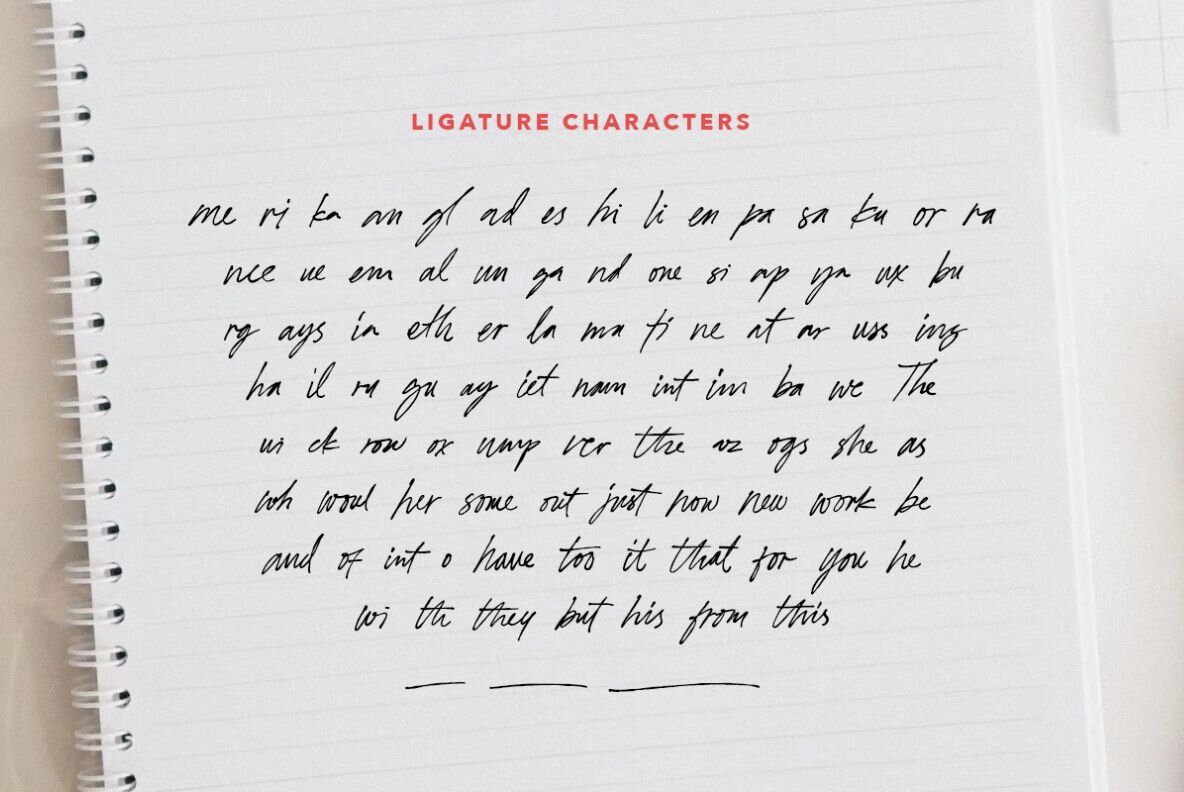 LIGATURE CHARACTERS
me ri ka an gl ad es hi li en pa sa ku or ra
nce ue em al un ga nd one si ap ya ux bu
rg ays in eth er la ma ti ne at ar uss ing
ha il ru gu ay iet nam int im ba we The
ui ck row ox ump ver the az ogs she as
wh woul her some out just now new work be
and of int o have too it that for you he
wi th they but his from this